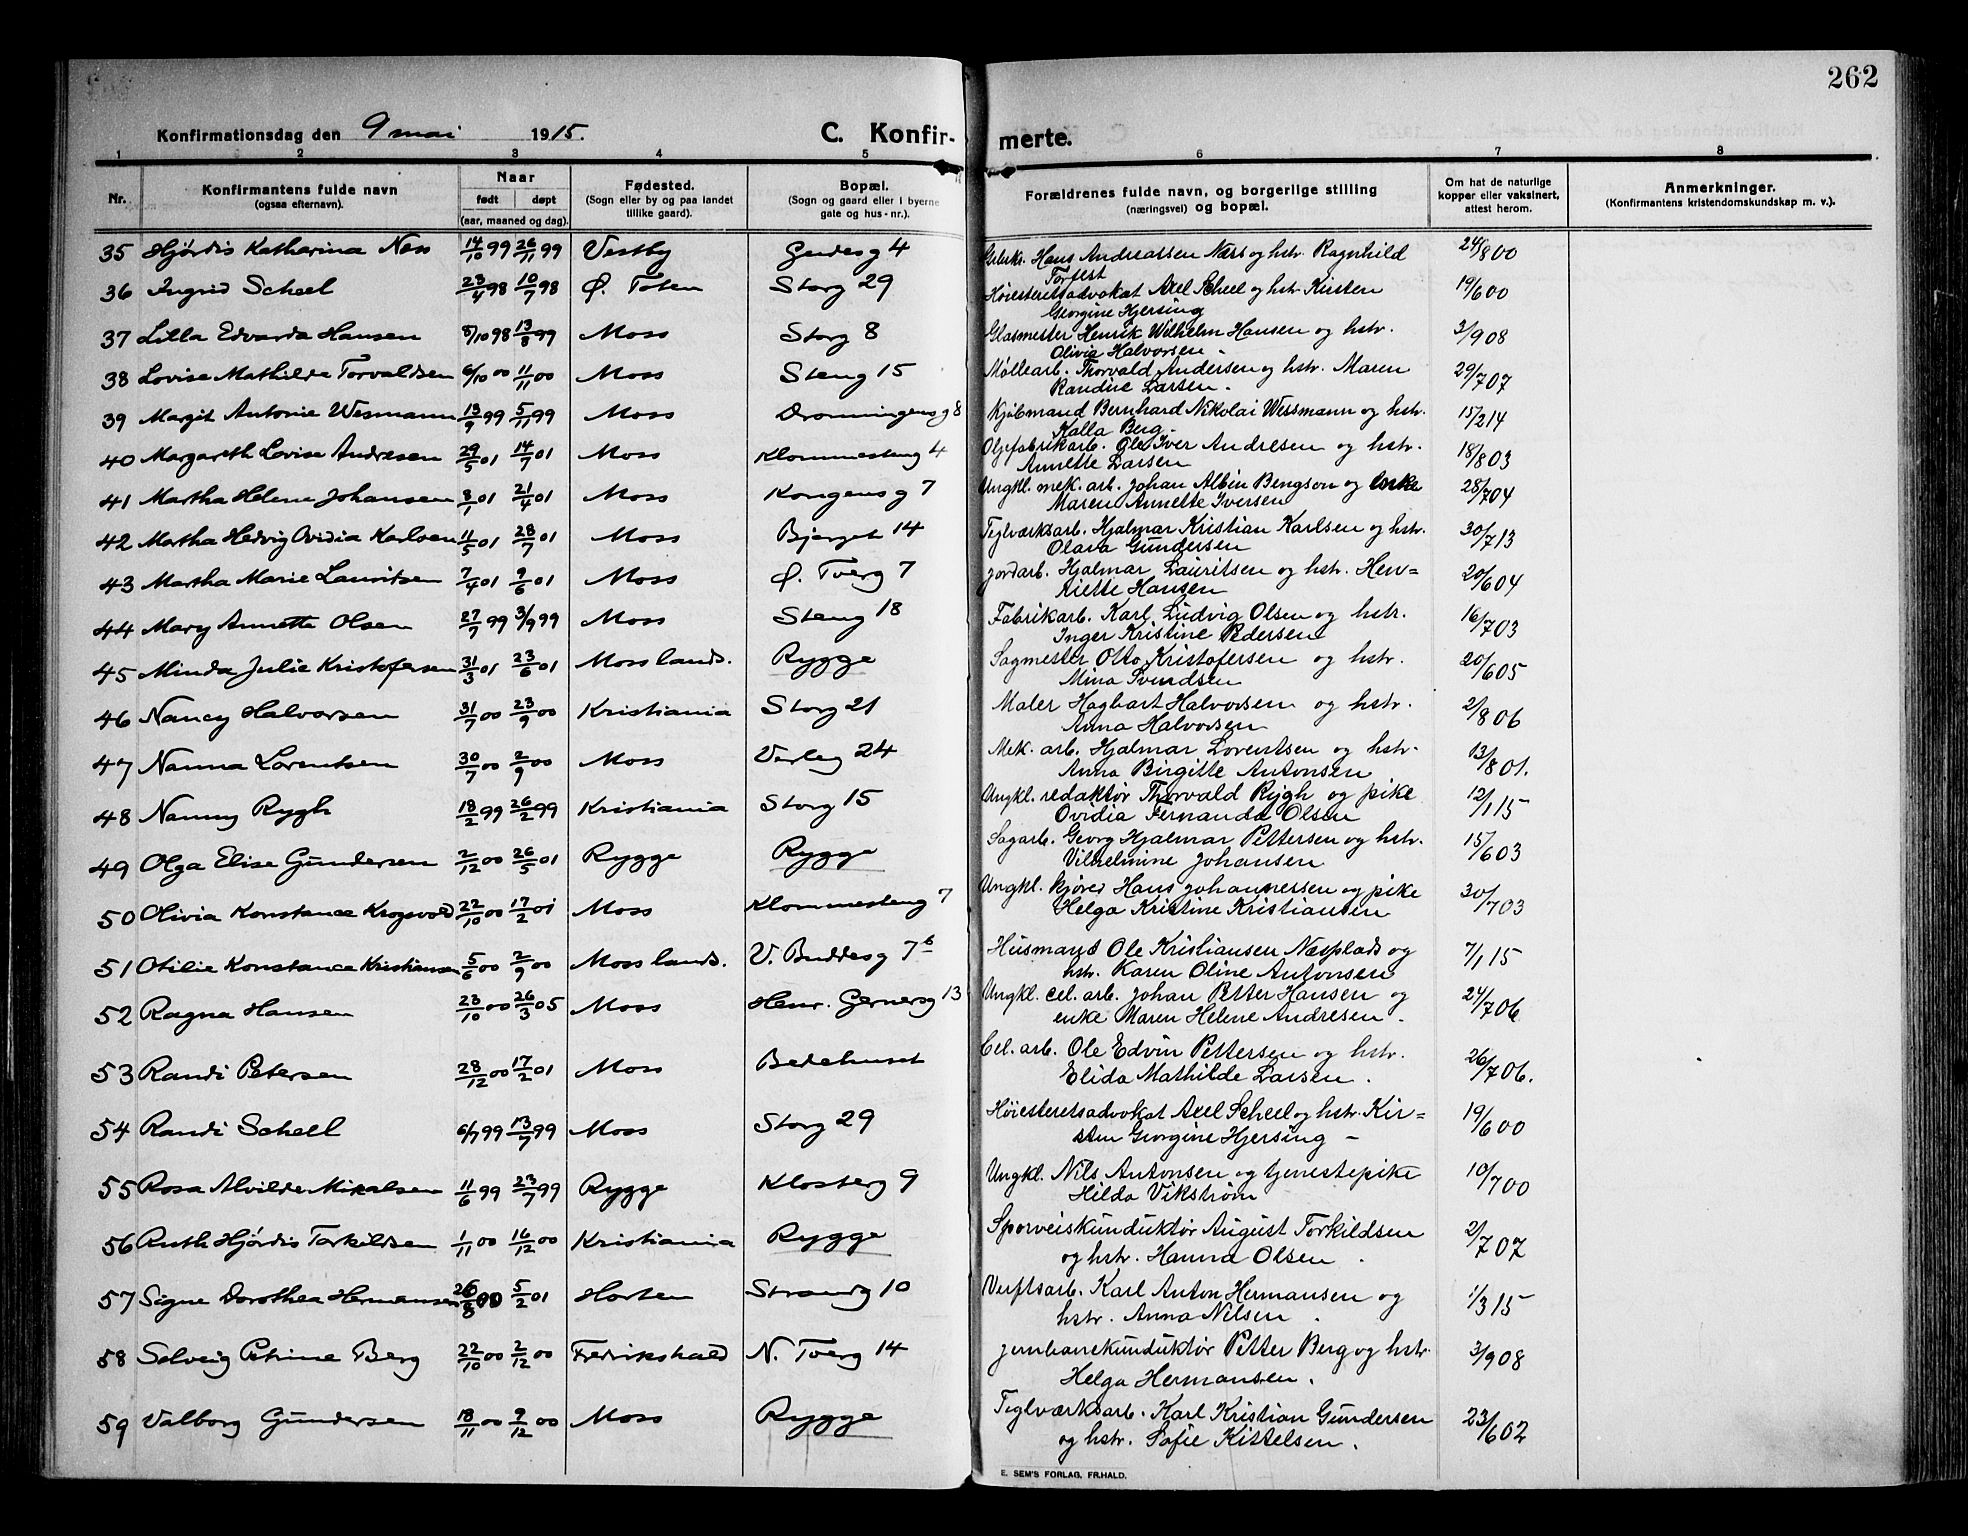 262
Konfirmationsdag den 9 mai 1915.
C. Konfir-
merte.
1 2 3 4 5 6 7 8
Nr.
Konfirmantens fulde navn
(ogsaa efternavn).
Naar
født døpt
(aar, maaned og dag).
Fødested.
(Sogn eller by og paa landet
tillike gaard).
Bopæl.
(Sogn og gaard eller i byerne
gate og hus-nr.).
Forældrenes fulde navn, og borgerlige stilling
(næringsvei) og bopæl.
Om hat de naturlige
kopper eller vaksinert,
attest herom.
Anmerkninger.
(Konfirmantens kristendomskundskap m. v.).
35 Hjørdis Katharina Ness 14/10 99 26/11 99 Vestby Gudesg 4 Hans Andreassen Næss og hstr. Ragnhild 24/8 00
Torfest
36 Ingrid Scheel 23/4 98 10/7 98 Ø. Toten Storg 29 Høiesteretsadvokat Axel Scheel og hstr. Kirsten 19/6 00
Georgine Hjersing
37 Lilla Edvarda Hansen 8/10 98 13/8 99 Moss Storg 8 Glasmester Henrik Wilhelm Hansen og hstr. 3/9 08
Olivia Halvorsen.
38 Lovise Mathilde Torvaldsen 6/10 00 11/11 00 Moss Steng 15 Møllearb. Thorvald Andersen og hstr. Maren 29/7 07
Randine Larsen.
39 Margit Antonie Wesmann 13/9 99 5/11 99 Moss Dronningensg 8 Kjøbmand Bernhard Nikolai Wessmann og hstr. 15/2 14
Kalla Berg.
40 Margareth Lovise Andresen 29/5 01 14/7 01 Moss Klommesteng 4 Oljefabrikarb. Ole Iver Andresen og hstr. 18/8 03
Annette Larsen
41 Martha Helene Johansen 8/1 01 21/4 01 Moss Kongensg 7 Ungkl. mek. arb. Johan Albin Bengson og enke 28/7 04
Maren Annette Iversen
42 Martha Hedvig Ovidia Karlsen 11/5 01 28/7 01 Moss Bjerget 14 Teglværksarb. Hjalmar Kristian Karlsen og hstr. 30/7 13
Olava Gundersen
43 Martha Marie Lauritsen 7/4 01 9/6 01 Moss Ø. Tverg 7 Jordarb. Hjalmar Lauritsen og hstr. Hen=
riette Hansen 20/6 04
44 Mary Annette Olsen 27/7 99 3/9 99 Moss Steng 18 Fabrikarb. Karl Ludvig Olsen og hstr. 16/7 03
Inger Kristine Pedersen
45 Minda Julie Kristofersen 31/3 01 23/6 01 Moss lands. Rygge Sagmester Otto Kristofersen og hstr. 20/6 05
Mina Svendsen
46 Nancy Halvorsen 31/7 00 23/9 00 Kristiania Storg 21 Maler Hagbart Halvorsen og hstr. 2/8 06
Anna Halvorsen
47 Nanna Lorentsen 30/7 00 2/9 00 Moss Verleg 24 Mek. arb. Hjalmar Lorentsen og hstr. 13/8 01.
Anna Birgitte Antonsen
48 Nanny Rygh 18/2 99 26/2 99 Kristiania Storg 15 Ungkl. redaktør Thorvald Rygh og pike 12/1 15
Ovidia Fernanda Olsen
49 Olga Elise Gundersen 2/12 00 26/5 01 Rygge Rygge Sagarb. Georg Hjalmar Pettersen og hstr. 15/6 03
Vilhelmine Johansen
50 Olivia Konstance Krogsvold 22/10 00 17/2 01 Moss Klommesteng 7 Ungkl. kjører Hans Johannessen og pike 30/7 03
Helga Kristine Kristiansen
51 Otilie Konstance Kristiansen 5/6 00 2/9 00 Moss lands. V. Buddesg 7b Husmand Ole Kristiansen Næsplads og 7/1 15
hstr. Karen Oline Antonsen
52 Ragna Hansen 23/10 00 26/3 05 Moss Henr. Gernersg 13 Ungkl. cel. arb. Johan Petter Hansen og 24/7 06
enke Maren Helene Andresen.
53 Randi Petersen 28/12 00 17/2 01 Moss Bedehuset Cel. arb. Ole Edvin Pettersen og hstr. 26/7 06.
Elida Mathilde Larsen.
54 Randi Scheel 6/7 99 13/7 99 Moss Storg 29 Høiesteretsadvokat Axel Scheel og hstr. Kir= 19/6 00
sten Georgine Hjersing -
55 Rosa Alvilde Mikalsen 11/6 99 23/7 99 Rygge Klosterg 9 Ungkl. Nils Antonsen og tjenestepike 10/7 00
Hilda Vikstrøm
56 Ruth Hjørdis Torkildsen 1/11 00 16/12 00 Kristiania Rygge Sporveiskunduktør August Torkildsen 2/7 07
og hstr. Hanna Olsen.
57 Signe Dorothea Hermansen 26/8 00 5/2 01 Horten Strandg 10 Verftsarb. Karl Anton Hermansen og 1/3 15
hstr. Anna Nilsen.
58 Solveig Petrine Berg 22/10 00 2/12 00 Fredrikshald N. Tverg 14 Jernbanekunduktør Petter Berg og hstr. 3/9 08
Helga Hermansen.
59 Valborg Gundersen 18/11 00 9/12 00 Moss Rygge Teglværksarb. Karl Kristian Gundersen 23/6 02
og hstr. Sofie Kittelsen.
E. SEM'S FORLAG, FR.HALD.